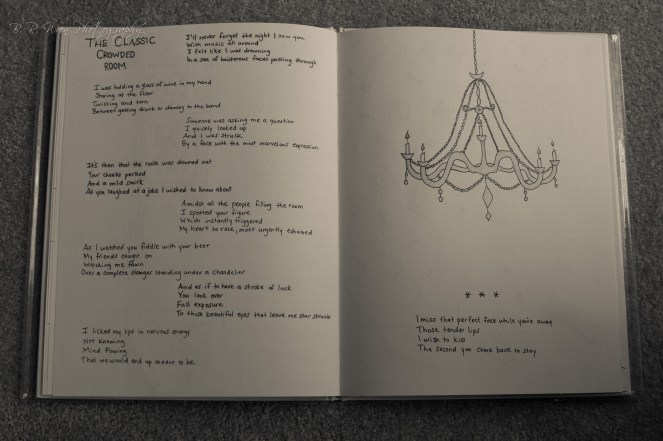 B.R. Wing Photography
THE CLASSIC
CROWDED
ROOM
I'll never forget the night I saw you
With music all around
I felt like I was drowning
In a sea of boisterous faces passing through
I was holding a glass of wine in my hand
Staring at the floor
Twisting and torn
Between getting drunk or dancing to the band
Someone was asking me a question
I quickly looked up
And I was struck
By a face with the most marvelous expression
It's then that the noise was drowned out
Your cheeks perked
And a mild smirk
As you laughed at a joke I wished to know about
Amidst all the people filling the room
I spotted your figure
Which instantly triggered
My heart to race, most urgently
As I watched you fiddle with your beer
My friends caught on
Watching me fawn
Over a complete stranger standing under a chandelier
And as if to have a stroke of luck
You look over
Full exposure
To those beautiful eyes that leave me star struck
I licked my lips in nervous energy
Not knowing
Mind flowing
That we would end up meant to be.
* * *
I miss that perfect face while you're away
Those tender lips
I wish to kiss
The second you come back to stay